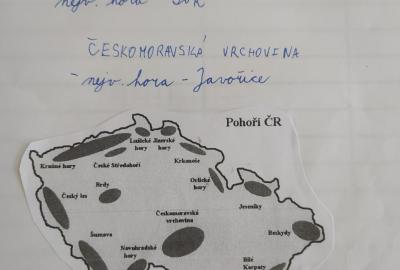 nejv. hora
ČESKOMORAVSKÁ VRCHOVINA
- nejv. hora - Javořice
Pohoří ČR
Lužické hory
Jizerské hory
Krušné hory
České Středohoří
Krkonoše
Orlické hory
Český les
Brdy
Jeseníky
Českomoravská vrchovina
Šumava
Novohradské hory
Beskydy
Bílé Karpaty